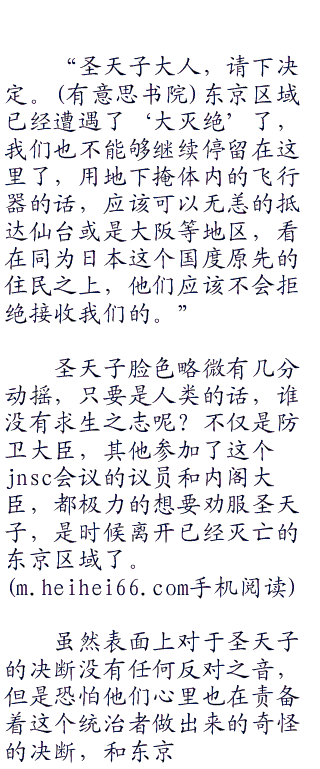 “圣天子大人，请下决
定。(有意思书院)东京区域
已经遭遇了‘大灭绝’了，
我们也不能够继续停留在这
里了，用地下掩体内的飞行
器的话，应该可以无恙的抵
达仙台或是大阪等地区，看
在同为日本这个国度原先的
住民之上，他们应该不会拒
绝接收我们的。”
圣天子脸色略微有几分
动摇，只要是人类的话，谁
没有求生之志呢？不仅是防
卫大臣，其他参加了这个
jnsc会议的议员和内阁大
臣，都极力的想要劝服圣天
子，是时候离开已经灭亡的
东京区域了。
(m.heihei66.com手机阅读)
虽然表面上对于圣天子
的决断没有任何反对之音，
但是恐怕他们心里也在责备
着这个统治者做出来的奇怪
的决断，和东京